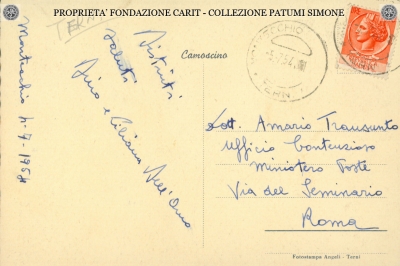 PROPRIETA' FONDAZIONE CARIT - COLLEZIONE PATUMI SIMONE
TERNI
Camoscino
Montecchio 4-7-1954
Distinti
saluti
Dino e Liliana Dell'Omo
Dott. Amario Transunto
Ufficio Contenzioso
Ministero Poste
Via del Seminario
Roma
Fotostampa Angeli - Terni